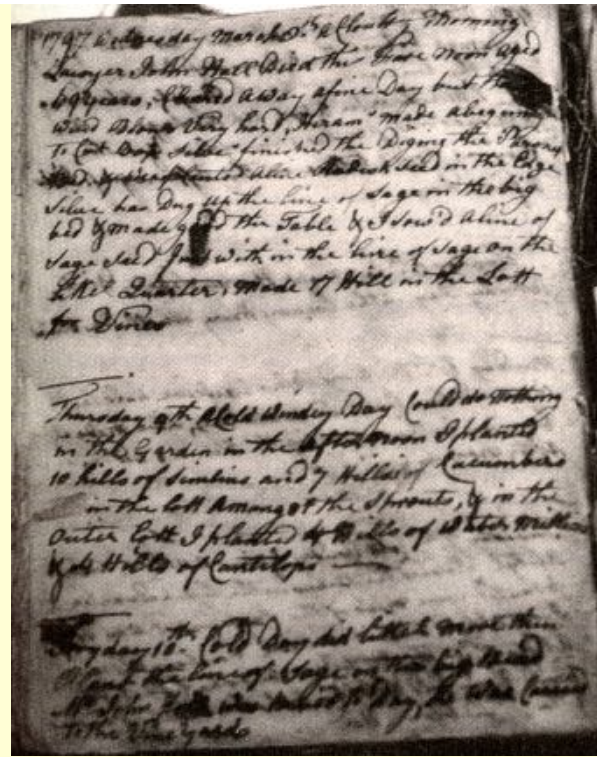 1797 Wednesday March 8th A Cloudy Morning
Lawyer John Hall Died this Fore noon aged
69 years, Cleared away a fine Day but the
Wind Blows Very hard, Hiram made a begining
To Cut Silue finished the Diging the
planted a line Radish seed in the Edge
Silue has Dug up the line of Sage in the big
bed & made good the Table & I sow'd a line of
Sage seed Just with in the line of Sage on the
Quarter, made 17 Hill in the Lott
for Vines
Thursday 9th A Cold Windey Day Could do Nothing
in the Garden in the afternoon I planted
10 hills of Simlins and 7 Hills of Cucumbers
in the lott Amongst the Sprouts, & in the
Outer Lott I planted 4 Hills of Water Millions
& 4 Hills of Cantilops
Fryday 10th Cold Day did little more then
plant the line of Sage in the big
Mr John Hall was buried to Day, he was Carried
to the Vineyards